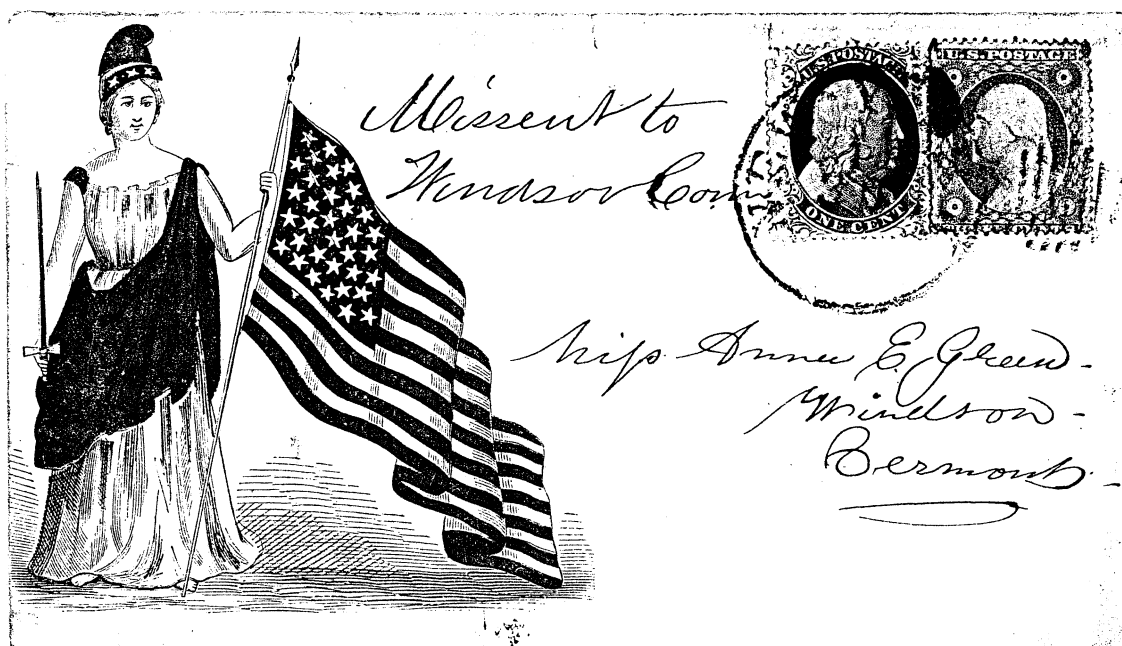 Missent to
Windsor Conn
U.S. POSTAGE
ONE CENT
U.S. POSTAGE
Miss Anna E. Green
Windsor
Vermont